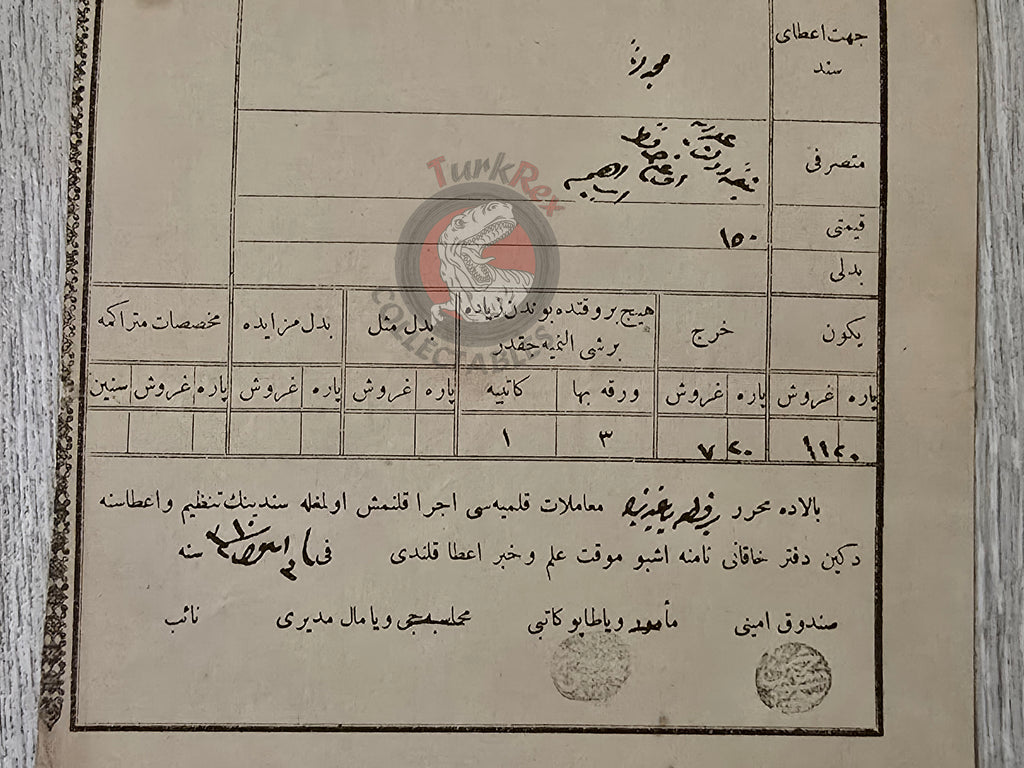 جهت اعطای
سند
متصرفی
TurkRex
قیمتی
١٥٠
بدلی
COLLECTABLES
یكون
خرج
هیچ بر وقتده بوندن زیاده
بر شی النمیه جقدر
بدل مثل
بدل مزایده
مخصصات متراكمه
پاره غروش پاره غروش ورقه بها كاتبیه پاره غروش پاره غروش پاره غروش سنین
٢٠ ١١ ٢٠ ٧ ٣ ١
بالاده محرر معاملات قلمیه سی اجرا قلنمش اولمغله سندینك تنظیم و اعطاسنه
دكین دفتر خاقانی نامنه اشبو موقت علم و خبر اعطا قلندی فی سنه
صندوق امینی
مأمور ویاطاپو كاتبی
ویا مال مدیری
نائب